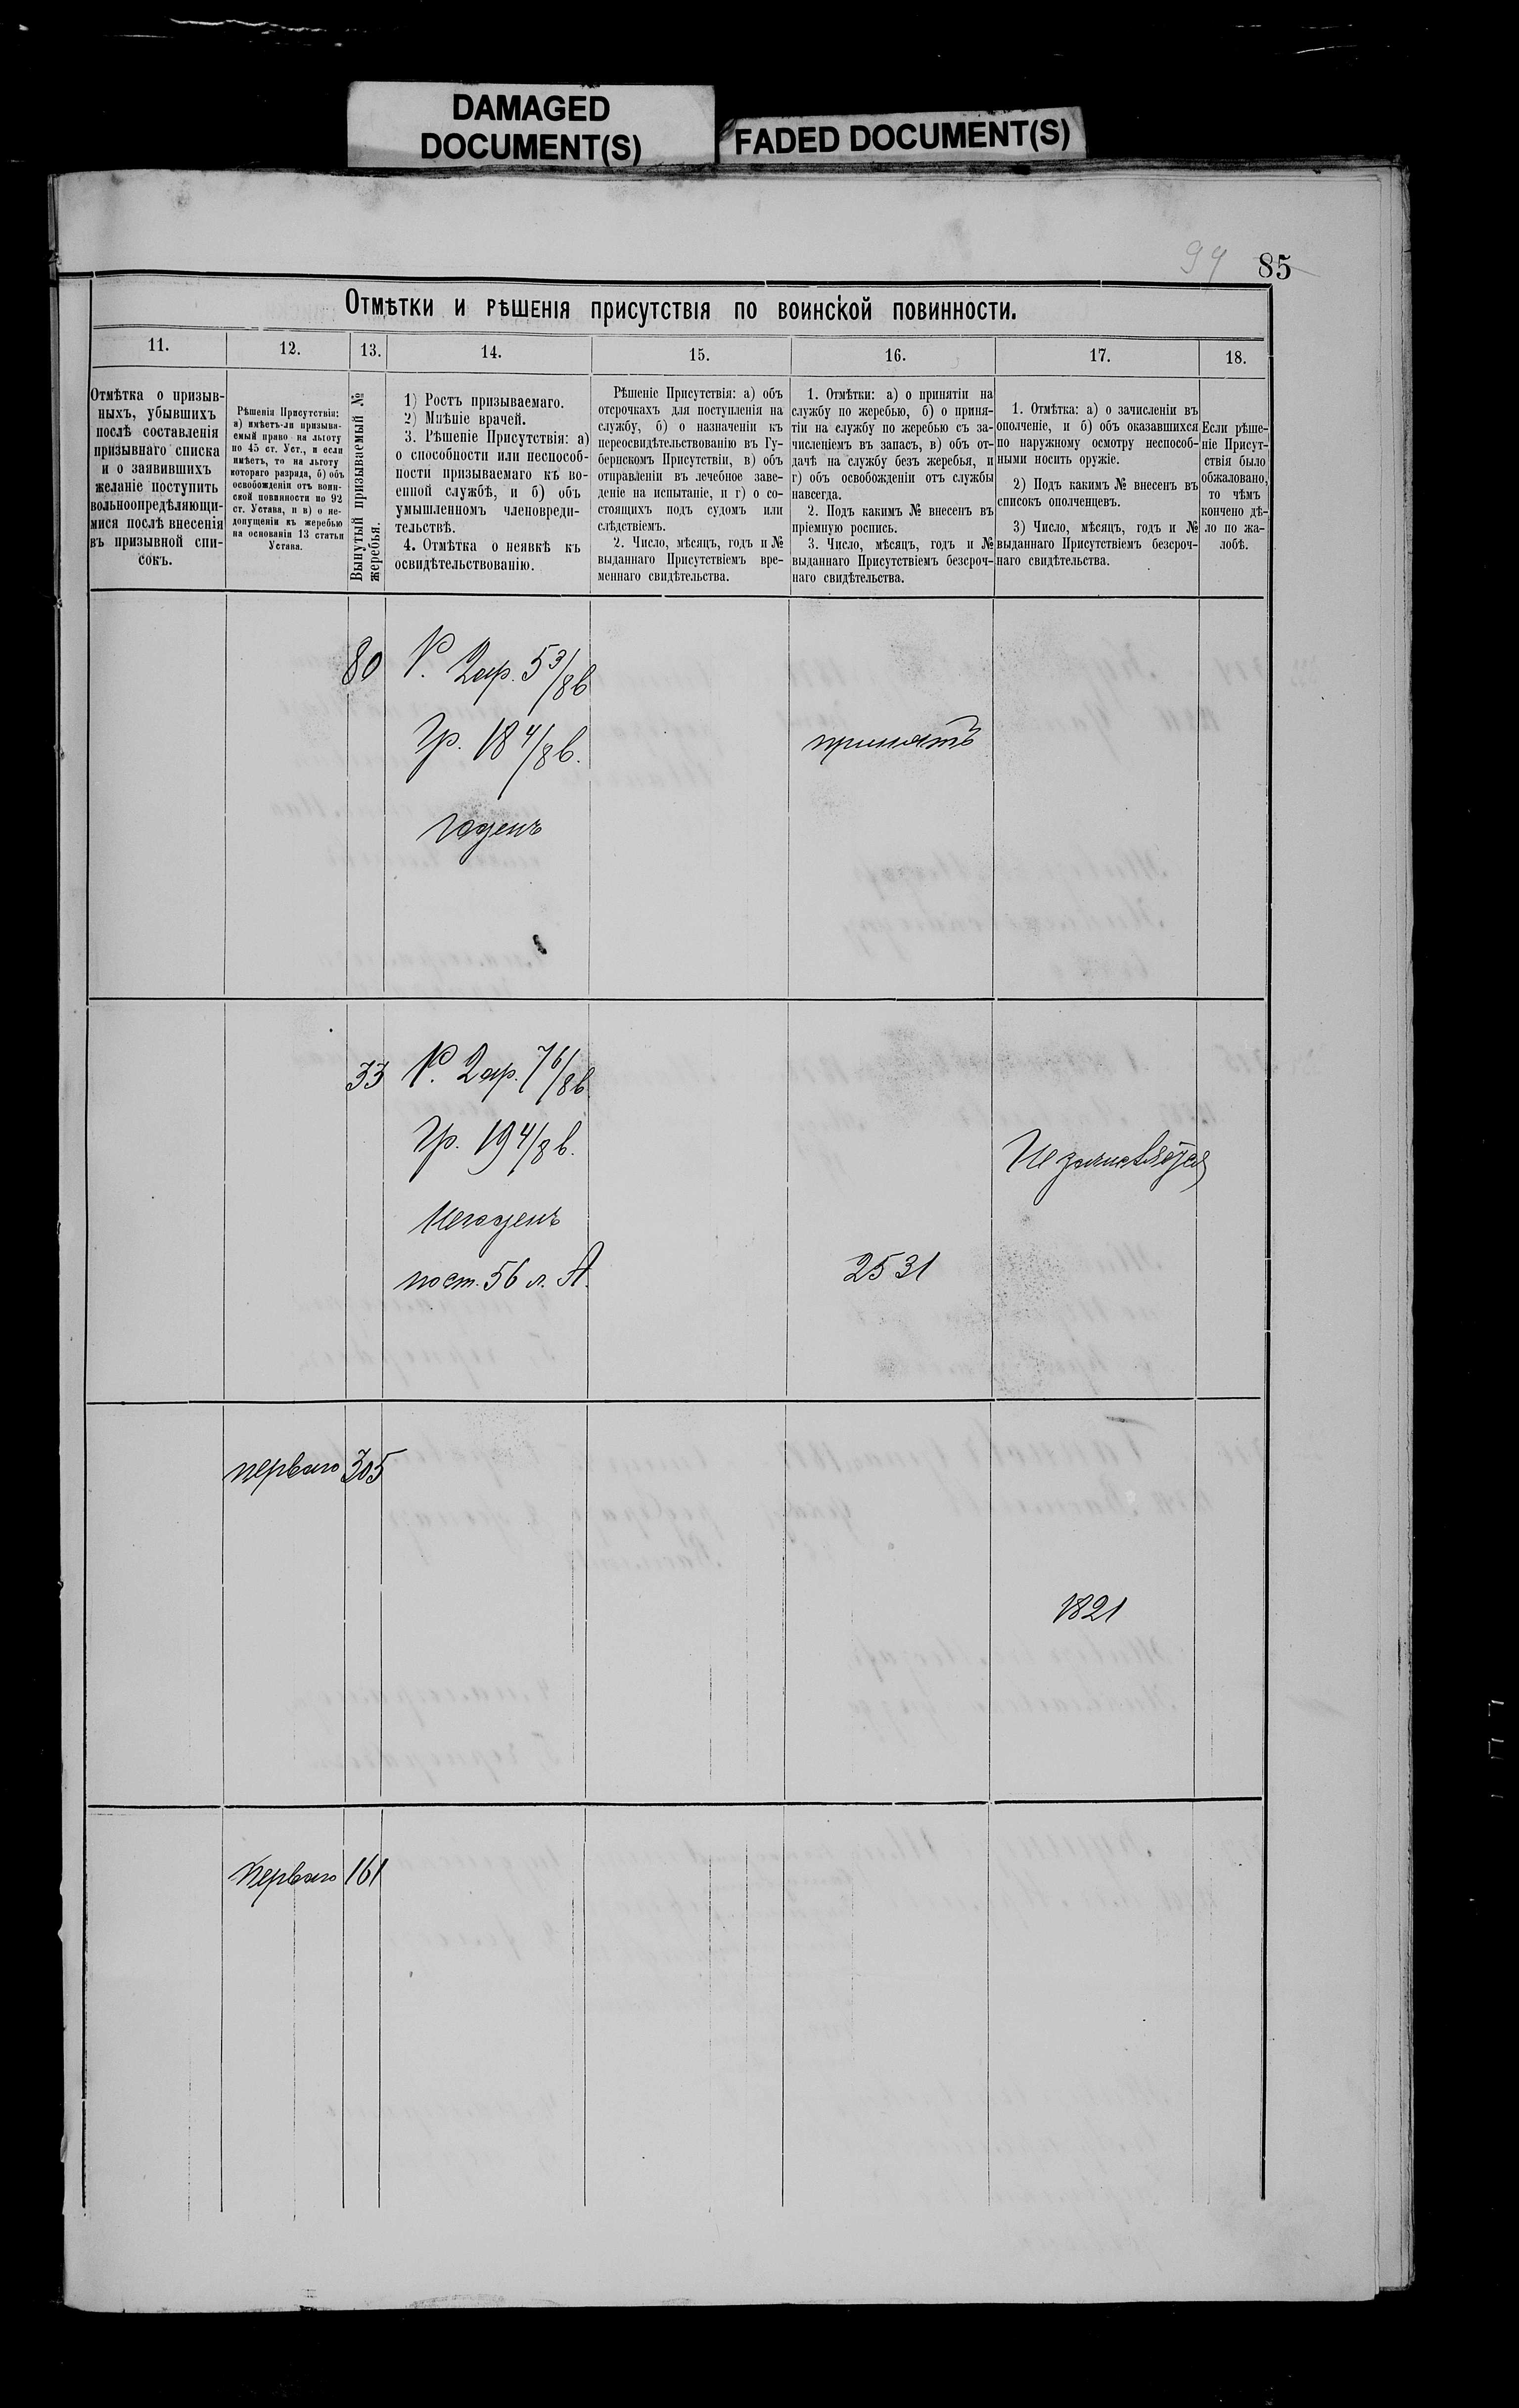 DAMAGED
DOCUMENT(S)
FADED DOCUMENT(S)
99 85
Отмѣтки и рѣшенія присутствія по воинской повинности.
11.
12.
13.
14.
15.
16.
17.
18.
Отмѣтка о призыв-
ныхъ, убывшихъ
послѣ составленія
призывнаго списка
и о заявившихъ
желаніе поступить
вольноопредѣляющи-
мися послѣ внесенія
въ призывной спи-
сокъ.
Рѣшенія Присутствія:
а) имѣетъ-ли призыва-
емый право на льготу
по 45 ст. Уст., и если
имѣетъ, то на льготу
котораго разряда, б) объ
освобожденіи отъ воин-
ской повинности по 92
ст. Устава, и в) о не-
допущеніи къ жеребью
на основаніи 13 статьи
Устава.
Вынутый призываемый №
жеребья.
1) Ростъ призываемаго.
2) Мнѣніе врачей.
3. Рѣшеніе Присутствія: а)
о способности или неспособ-
ности призываемаго къ во-
енной службѣ, и б) объ
умышленномъ членовреди-
тельствѣ.
4. Отмѣтка о неявкѣ къ
освидѣтельствованію.
Рѣшеніе Присутствія: а) объ
отсрочкахъ для поступленія на
службу, б) о назначеніи къ
переосвидѣтельствованію въ Гу-
бернскомъ Присутствіи, в) объ
отправленіи въ лечебное заве-
деніе на испытаніе, и г) о со-
стоящихъ подъ судомъ или
слѣдствіемъ.
2. Число, мѣсяцъ, годъ и №
выданнаго Присутствіемъ вре-
меннаго свидѣтельства.
1. Отмѣтки: а) о принятіи на
службу по жеребью, б) о приня-
тіи на службу по жеребью съ за-
численіемъ въ запасъ, в) объ от-
дачѣ на службу безъ жеребья, и
г) объ освобожденіи отъ службы
навсегда.
2. Подъ какимъ № внесенъ въ
пріемную роспись.
3. Число, мѣсяцъ, годъ и №
выданнаго Присутствіемъ безсроч-
наго свидѣтельства.
1. Отмѣтка: а) о зачисленіи въ
ополченіе, и б) объ оказавшихся
по наружному осмотру неспособ-
ными носить оружіе.
2) Подъ какимъ № внесенъ въ
списокъ ополченцевъ.
3) Число, мѣсяцъ, годъ и №
выданнаго Присутствіемъ безсроч-
наго свидѣтельства.
Если рѣше-
ніе Присут-
ствія было
обжаловано,
то чѣмъ
кончено дѣ-
ло по жа-
лобѣ.
80 Р. 2ар. 5 3/8 в
Гр. 18 4/8 в.
принятъ
годенъ
33 Р. 2ар. 7 6/8 в.
Гр. 19 4/8 в.
Не зачисляется
Негоденъ
пост. 56 л. А.
2531
перваго 305
1821
перваго 161